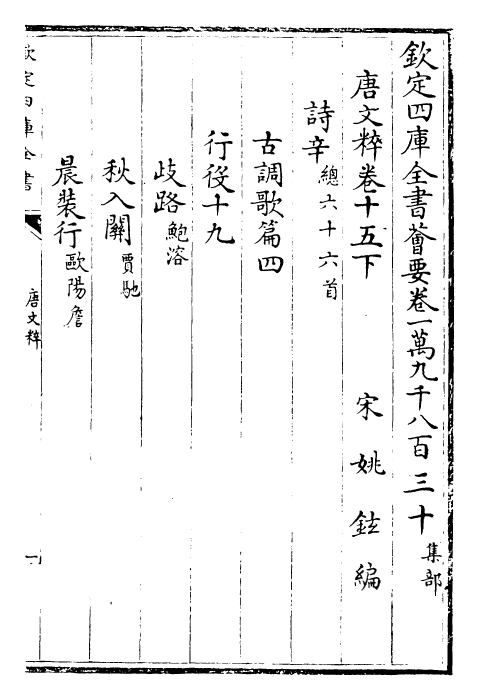 欽定四庫全書薈要卷一萬九千八百三十集部
唐文粹卷十五下　宋姚鉉編
詩辛總六十六首
古調歌篇四
行役十九
歧路鮑溶
秋入關賈馳
晨裝行歐陽詹
欽定四庫全書　唐文粹　一